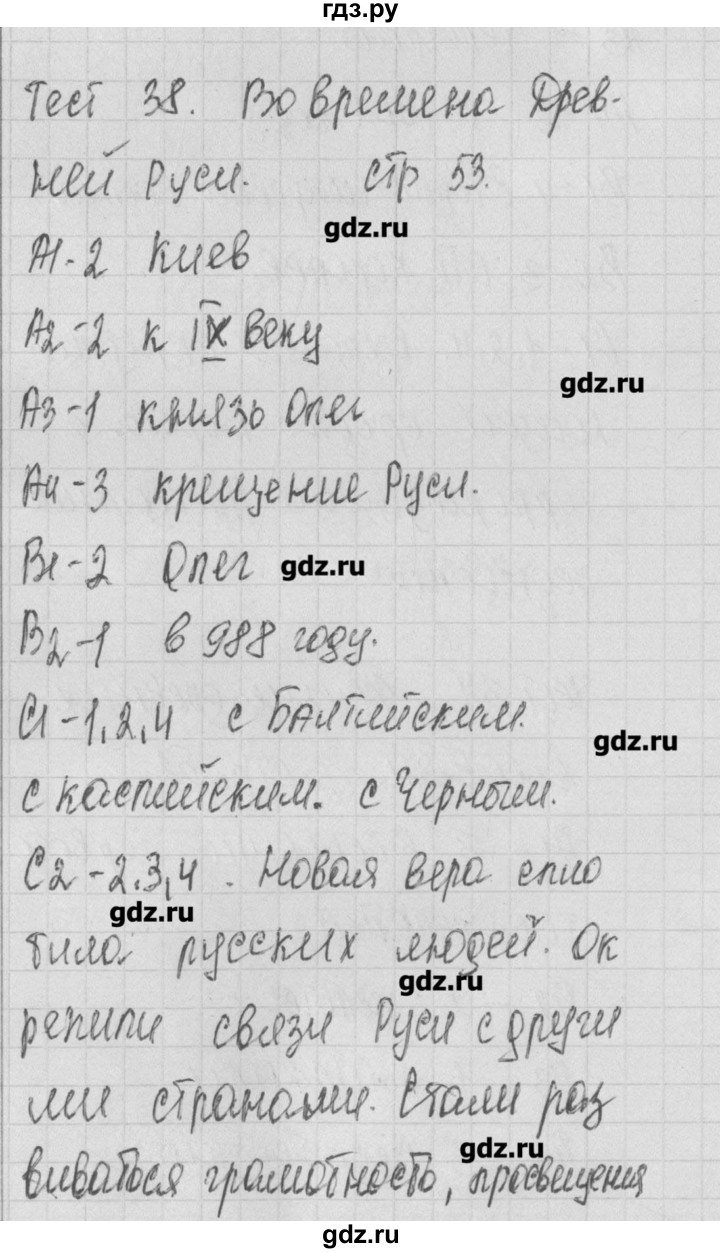 гдз.ру
Тест 38. Во времена Древ-
ней Руси. стр 53.
gdz.ru
А1-2 Киев
А2-2 к IX веку
gdz.ru
А3-1 князь Олег
А4-3 крещение Руси.
В1-2 Олег gdz.ru
В2-1 в 988 году.
С1-1,2,4 с Балтийским.
gdz.ru
с каспийским. с Черным.
С2-2.3,4. Новая вера спло
gdz.ru
тила русских людей. Ок
gdz.ru
репили связи Руси с други
ми странами. Стали раз
gdz.ru
виваться грамотность, просвещения
gdz.ru